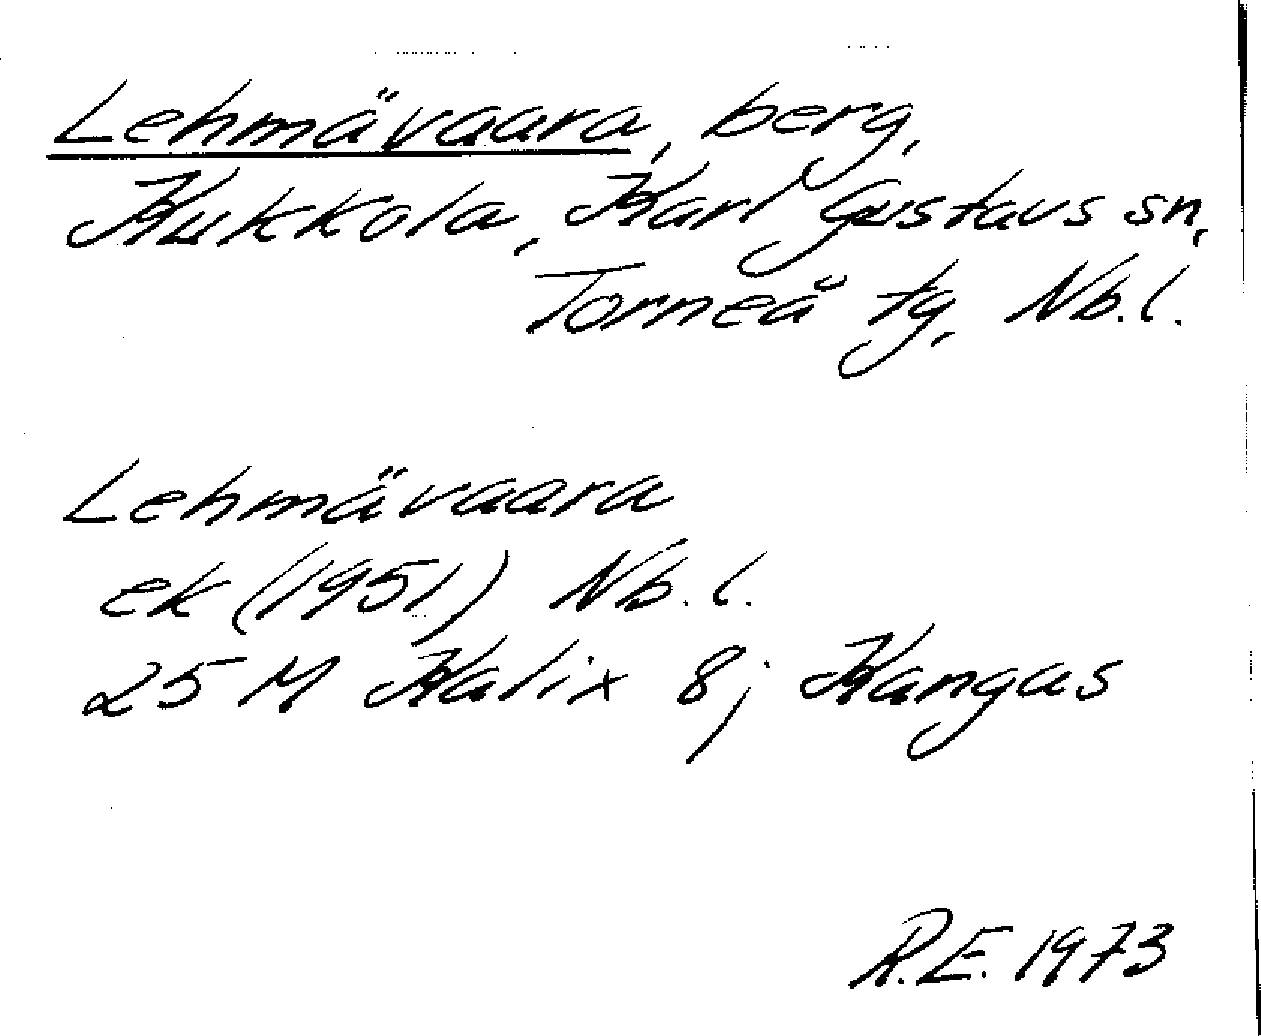 Lehmävaara, berg,
Kukkola, Karl Gustavs sn,
Torneå tg, Nb.l.
Lehmävaara
ek (1951) Nb.l.
25 M Kalix 8; Kangas
R.E. 1973